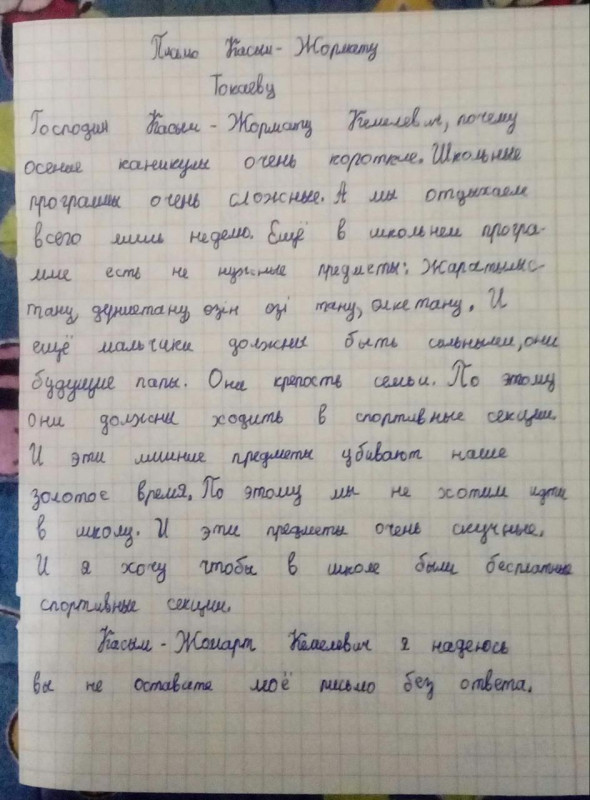 Писмо Касым-Жормату
Токаеву
Господин Касым-Жормату Кемелевич, почему
осение каникулы очень короткие. Школьные
программы очень сложные. А мы отдыхаем
всего лишь неделю. Ещё в школьнем програ-
мме есть не нужные предметы: Жаратылыс-
тану, дүниетану, өзін өзі тану, өлкетану. И
ещё мальчики должны быть сильными, они
будущие папы. Они крепость семьи. По этому
они должны ходить в спортивные секции.
И эти лишние предметы убивают наше
золотое время. По этому мы не хотим идти
в школу. И эти предметы очень скучные.
И я хочу чтобы в школе были бесплатные
спортивные секции.
Касым-Жомарт Кемелевич я надеюсь
вы не оставите моё письмо без ответа.